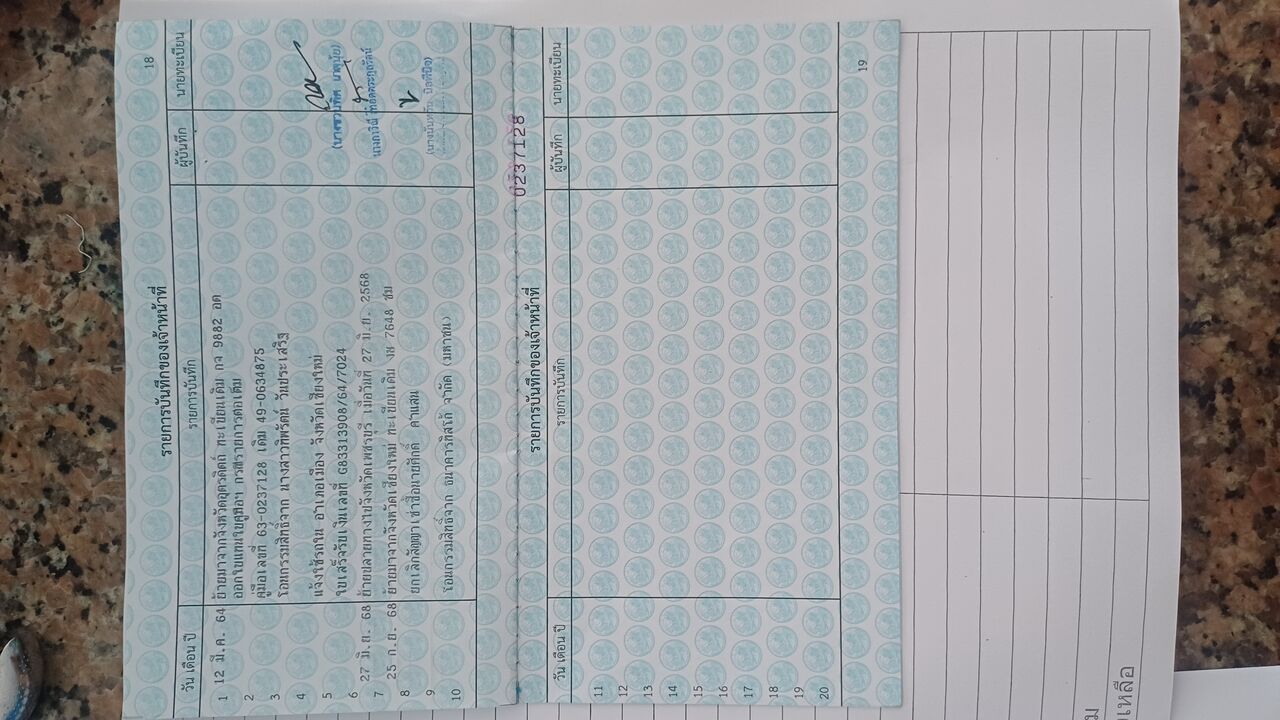 18
รายการบันทึกของเจ้าหน้าที่
วัน เดือน ปี รายการบันทึก ผู้บันทึก นายทะเบียน
1 12 มี.ค. 64 ย้ายมาจากจังหวัดอุตรดิตถ์ ทะเบียนเดิม กจ 9882 อต
2 ออกใบแทนใบคู่มือฯ กรณีรายการต่อเติม
3 คู่มือเลขที่ 63-0237128 เดิม 49-0634875
4 โอนกรรมสิทธิ์จาก นางสาวทิพรัตน์ วันประเสริฐ
5 แจ้งใช้รถใน อำเภอเมือง จังหวัดเชียงใหม่
6 ใบเสร็จรับเงินเลขที่ G83313908/64/7024
7 27 มิ.ย. 68 ย้ายปลายทางไปจังหวัดเพชรบุรี เมื่อวันที่ 27 มิ.ย. 2568
8 25 ก.ย. 68 ย้ายมาจากจังหวัดเชียงใหม่ ทะเบียนเดิม งษ 7648 ชม
9 ยกเลิกสัญญาเช่าซื้อนายศักดิ์ คำแสน
10 โอนกรรมสิทธิ์จาก ธนาคารทิสโก้ จำกัด (มหาชน)
0237128
รายการบันทึกของเจ้าหน้าที่
วัน เดือน ปี รายการบันทึก ผู้บันทึก นายทะเบียน
11
12
13
14
15
16
17
18
19
20
19